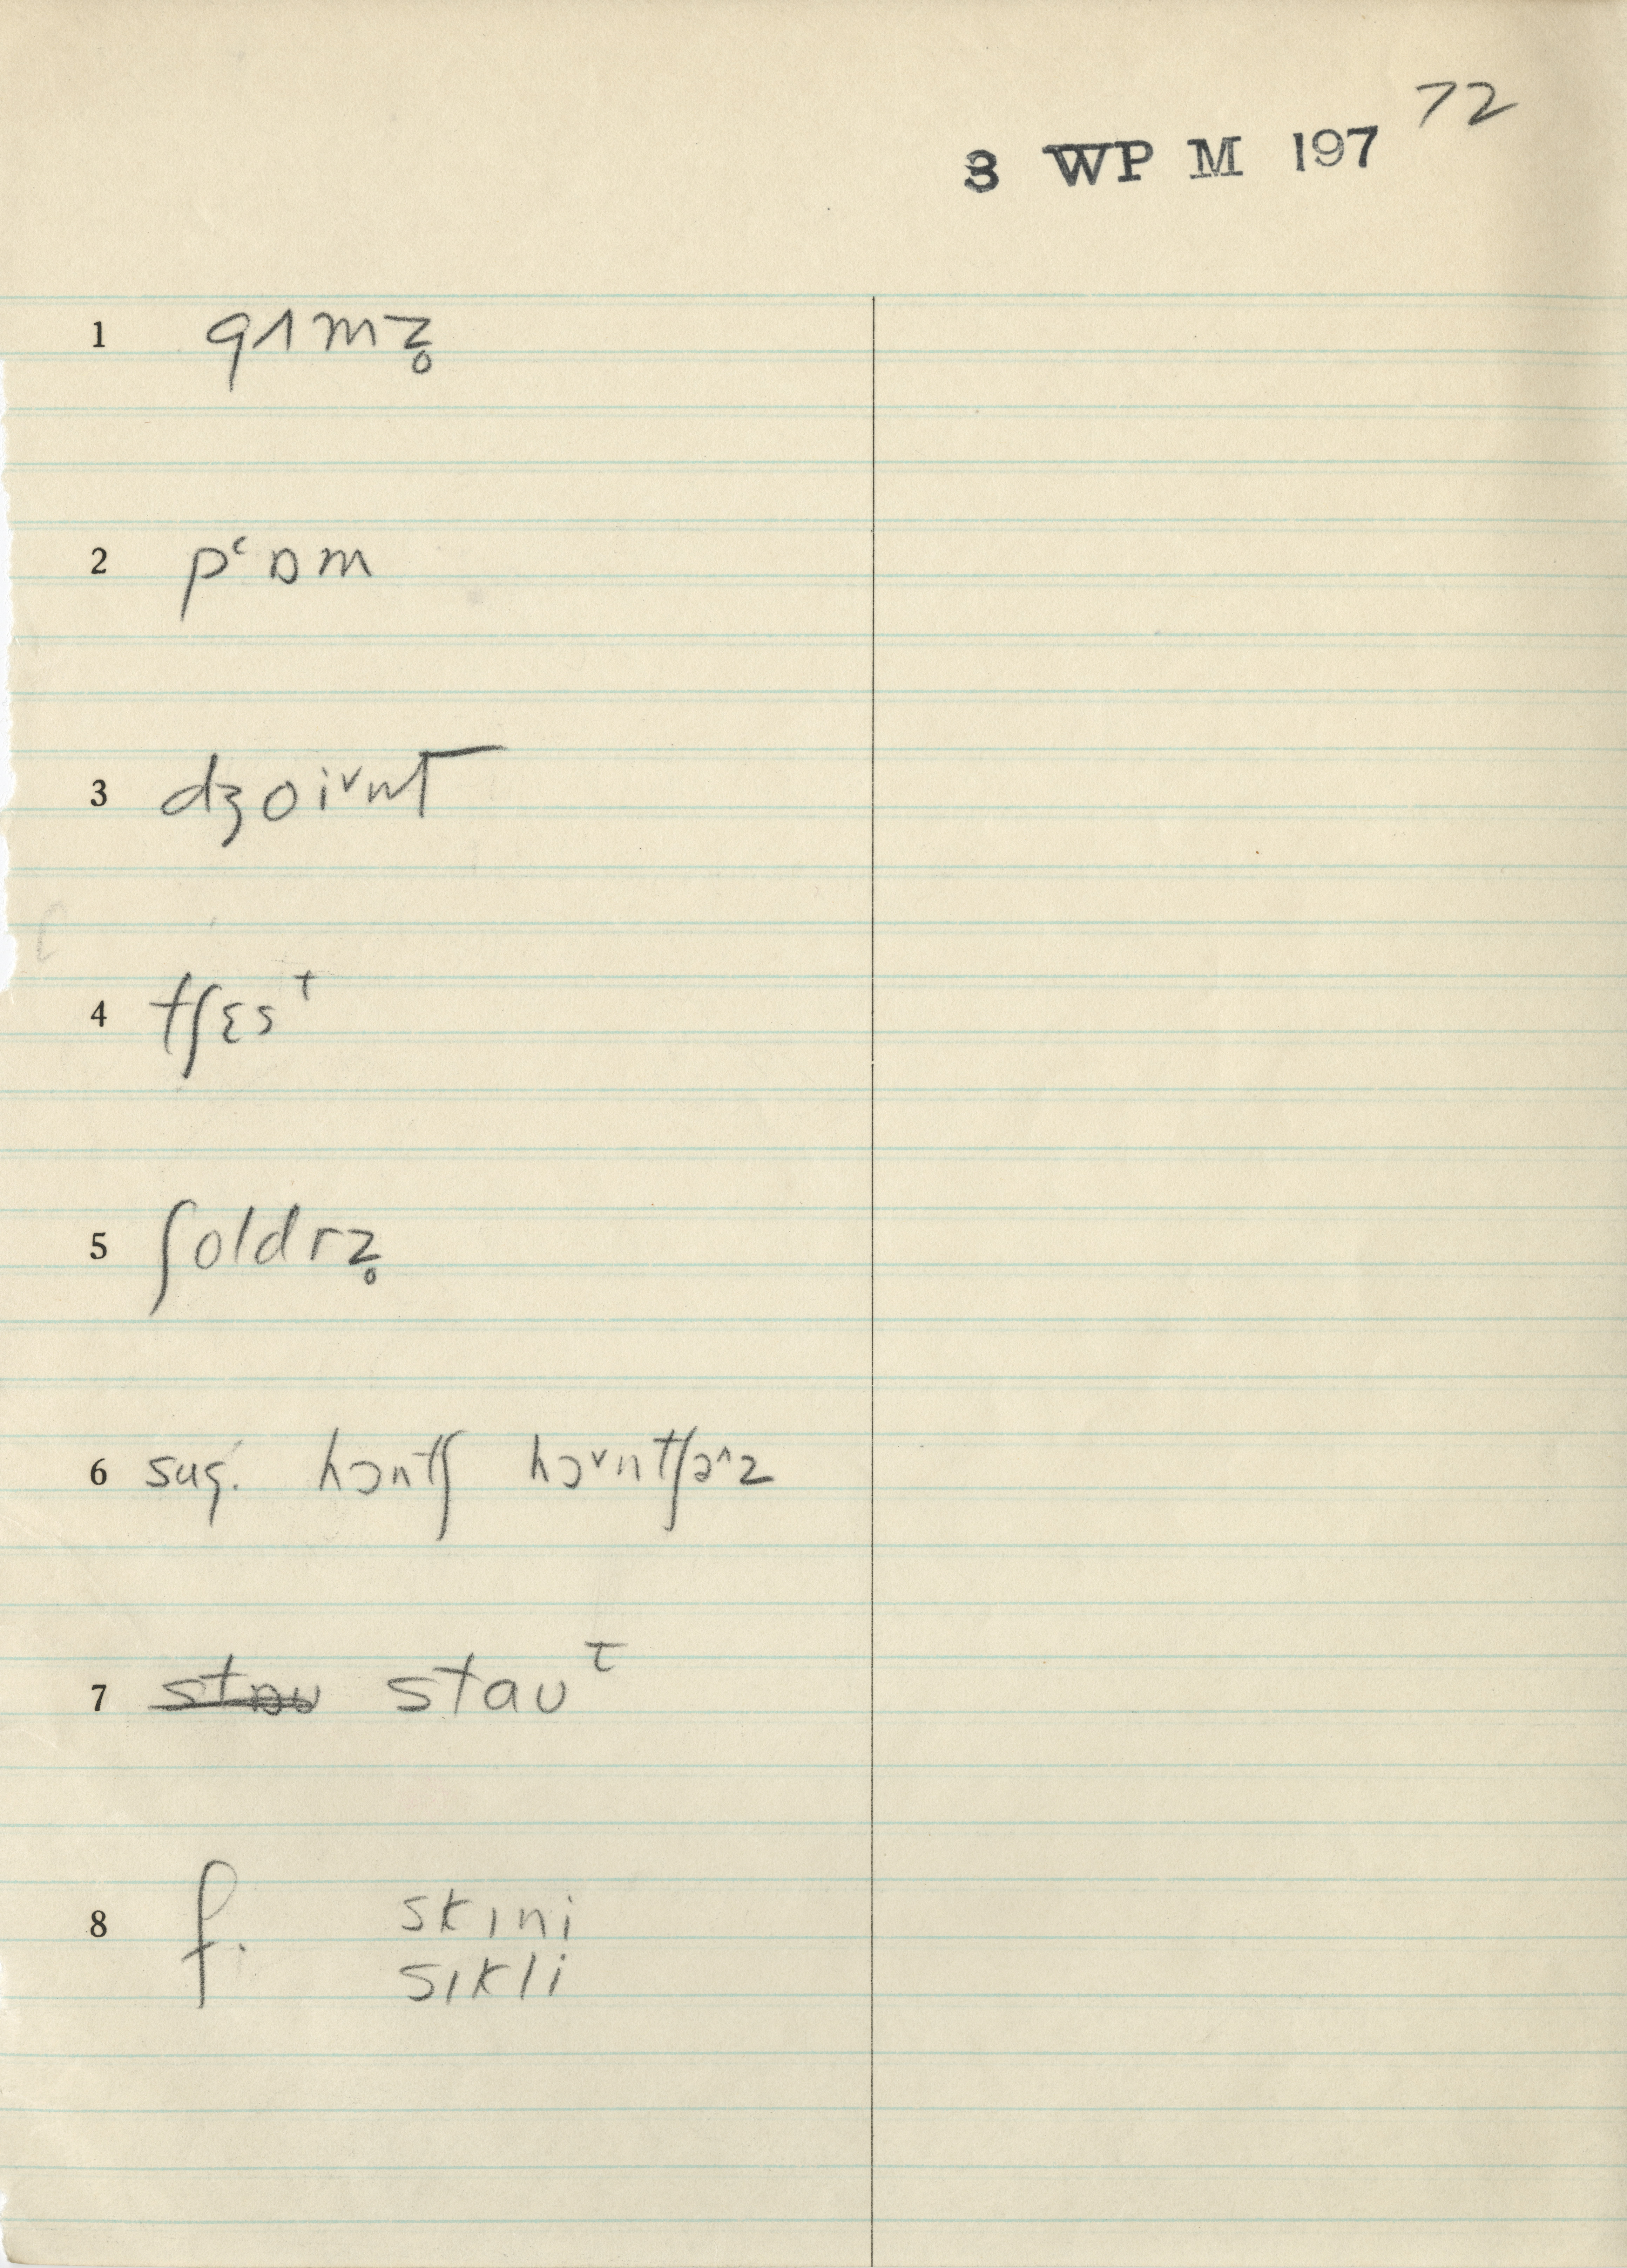 72
3 WP M 197
1 gʌmz̥
2 pʻɒm
3 dʒoi˅nt
4 tʃɛsᵗ
5 ʃoldrz̥
6 sug. hɔntʃ hɔ˅ntʃə˄z
7 stɒu stauᵗ
8 f. skɪni
sɪkli